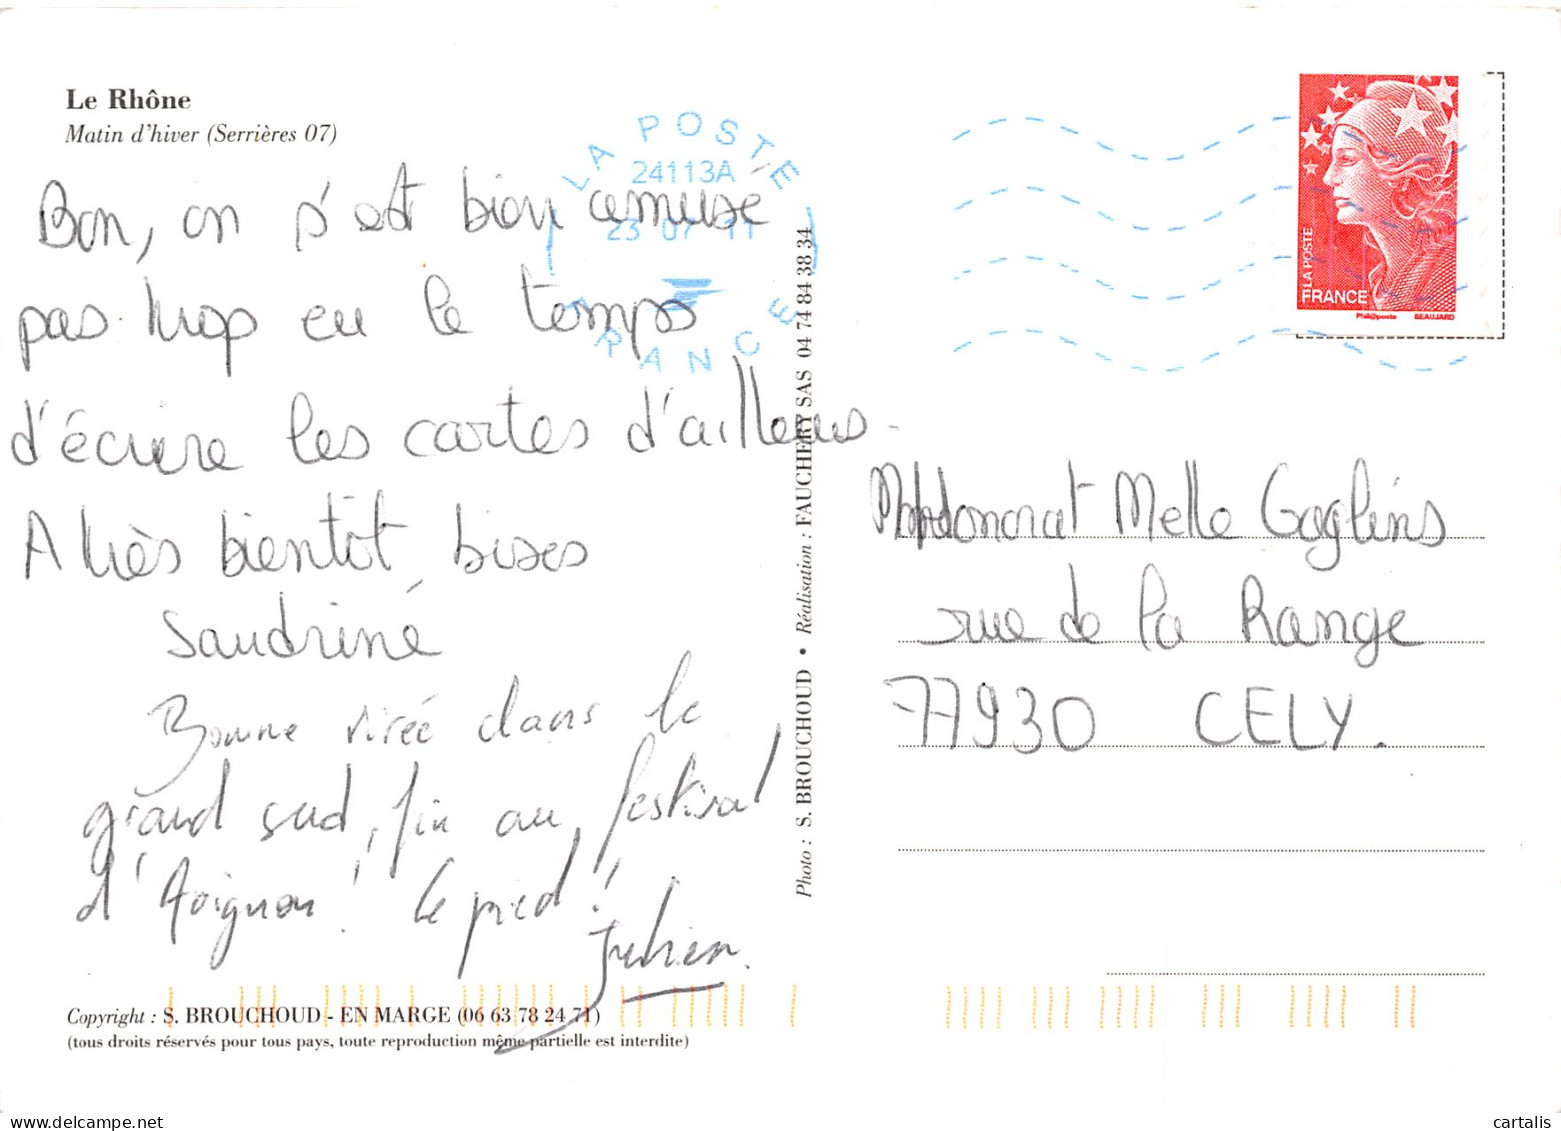 Le Rhône
Matin d'hiver (Serrières 07)
LA POSTE
24113A
23 07 11
FRANCE
Bon, on s'est bien amusé
pas trop eu le temps
d'écrire les cartes d'ailleurs.
A très bientôt bises
Sandrine
Bonne virée dans le
grand sud, fin au festival
d'Avignon! Le pied!
Julien.
Copyright : S. BROUCHOUD - EN MARGE (06 63 78 24 71)
(tous droits réservés pour tous pays, toute reproduction même partielle est interdite)
Photo : S. BROUCHOUD • Réalisation : FAUCHERY SAS 04 74 84 38 34
LA POSTE
FRANCE
Phil@poste BEAUJARD
Melle
rue de la Range
77930 CELY.
www.cartalis.com